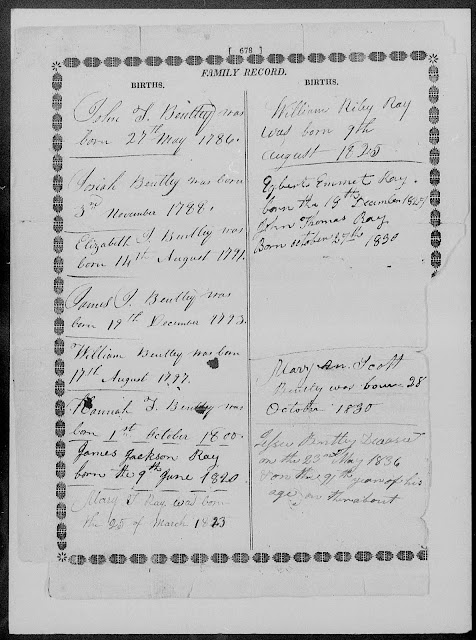 [ 678 ]
FAMILY RECORD.
BIRTHS.
John T. Bentley was
born 27th May 1786.
Josiah Bentley was born
3rd November 1788.
Elizabeth J. Bentley was
born 14th August 1791.
James J. Bentley was
born 19th December 1793.
William Bentley was born
17th August 1797.
Hannah T. Bentley was
born 1st October 1800.
James Jackson Ray
born the 9th June 1820
Mary T Ray was born
the 25 of March 1823
BIRTHS.
William Riby Ray
was born 9th
August 1825
Egbert Emmet Ray.
born the 18th December 1827
John Thomas Ray.
Born october 27th 1830
Mary An Scott
Bently was born 28
October 1830
Bentley Deceased
on the 23rd May 1836
the year of his
age